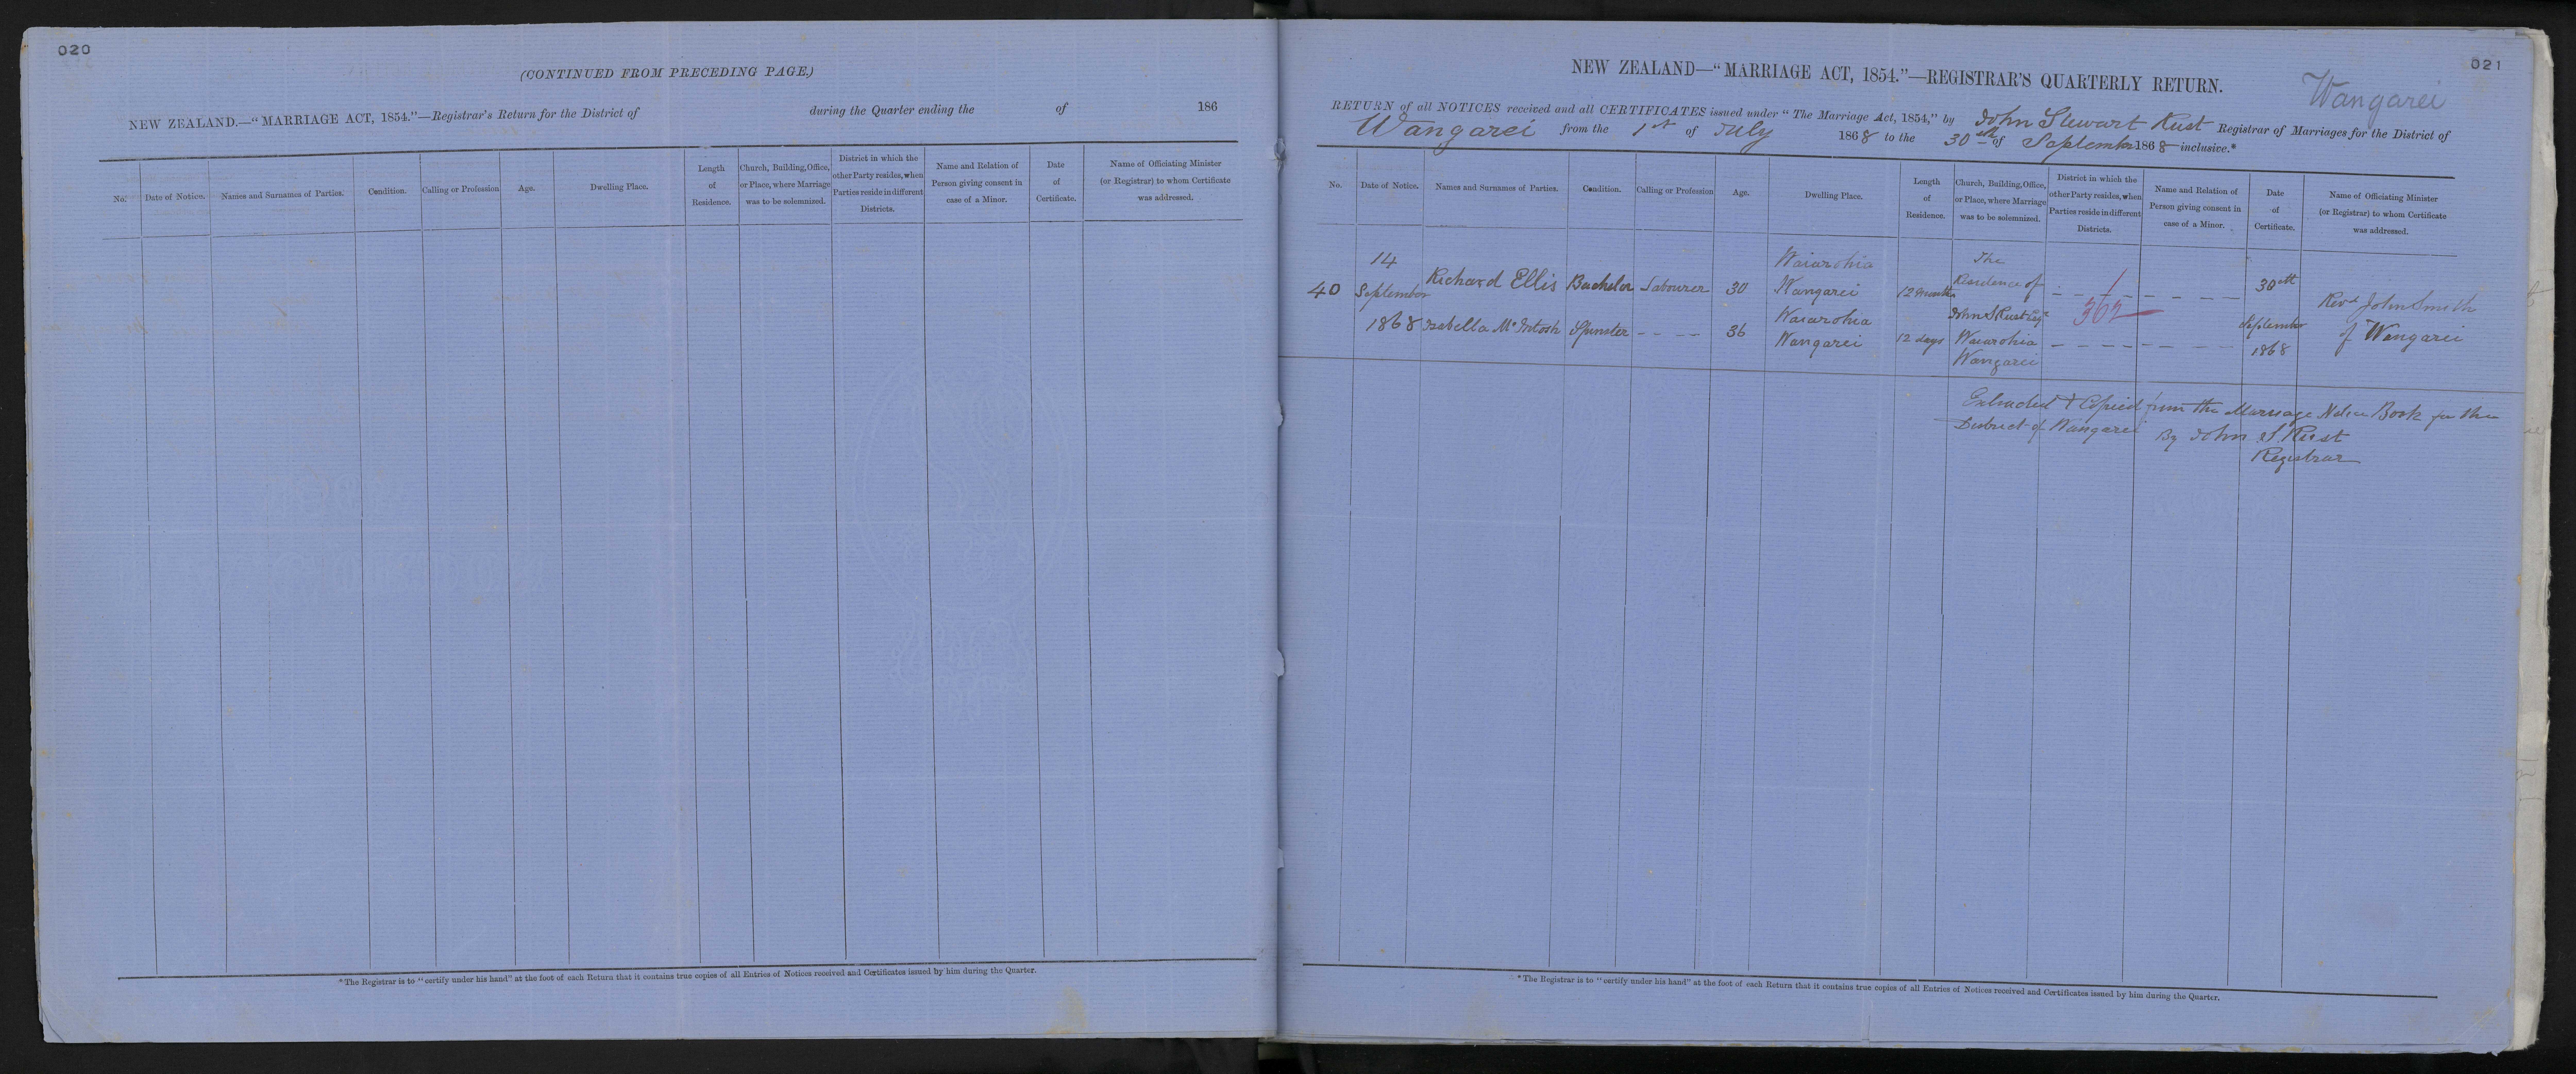 020
(CONTINUED FROM PRECEDING PAGE.)
NEW ZEALAND.—"MARRIAGE ACT, 1854."—Registrar's Return for the District of during the Quarter ending the of 186
No. Date of Notice. Names and Surnames of Parties. Condition. Calling or Profession Age. Dwelling Place. Length of Residence. Church, Building, Office, or Place, where Marriage was to be solemnized. District in which the other Party resides, when Parties reside in different Districts. Name and Relation of Person giving consent in case of a Minor. Date of Certificate. Name of Officiating Minister (or Registrar) to whom Certificate was addressed.
*The Registrar is to "certify under his hand" at the foot of each Return that it contains true copies of all Entries of Notices received and Certificates issued by him during the Quarter.
021
NEW ZEALAND—"MARRIAGE ACT, 1854."—REGISTRAR'S QUARTERLY RETURN.
Wangarei
RETURN of all NOTICES received and all CERTIFICATES issued under "The Marriage Act, 1854," by John Stewart Rust Registrar of Marriages for the District of
Wangarei from the 1st of July 1868 to the 30th of September 1868 inclusive.*
No. Date of Notice. Names and Surnames of Parties. Condition. Calling or Profession Age. Dwelling Place. Length of Residence. Church, Building, Office, or Place, where Marriage was to be solemnized. District in which the other Party resides, when Parties reside in different Districts. Name and Relation of Person giving consent in case of a Minor. Date of Certificate. Name of Officiating Minister (or Registrar) to whom Certificate was addressed.
40
14
September
1868
Richard Ellis
Isabella McIntosh
Bachelor
Spinster
Labourer
– – – –
30
36
Waiarohia
Wangarei
Waiarohia
Wangarei
12 months
12 days
The
Residence of
John S Rust Esqr
Waiarohia
Wangarei
1
362
30th
September
1868
Revd John Smith
of Wangarei
Extracted & Copied from the Marriage Notice Book for the
District of Wangarei By John S. Rust
Registrar
*The Registrar is to "certify under his hand" at the foot of each Return that it contains true copies of all Entries of Notices received and Certificates issued by him during the Quarter.